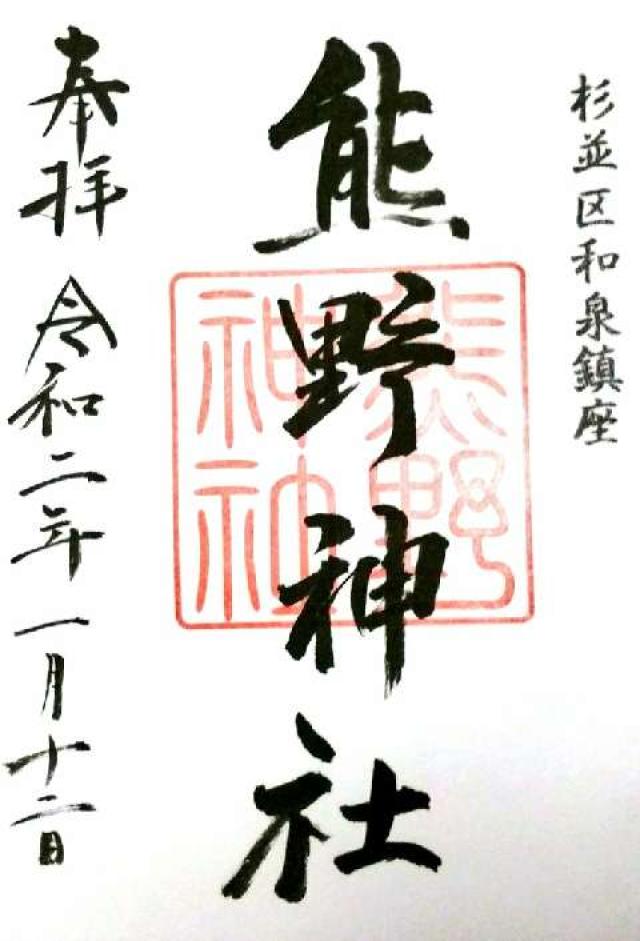 杉並区和泉鎮座
熊野神社
熊野
神社
奉拝 令和二年一月十二日